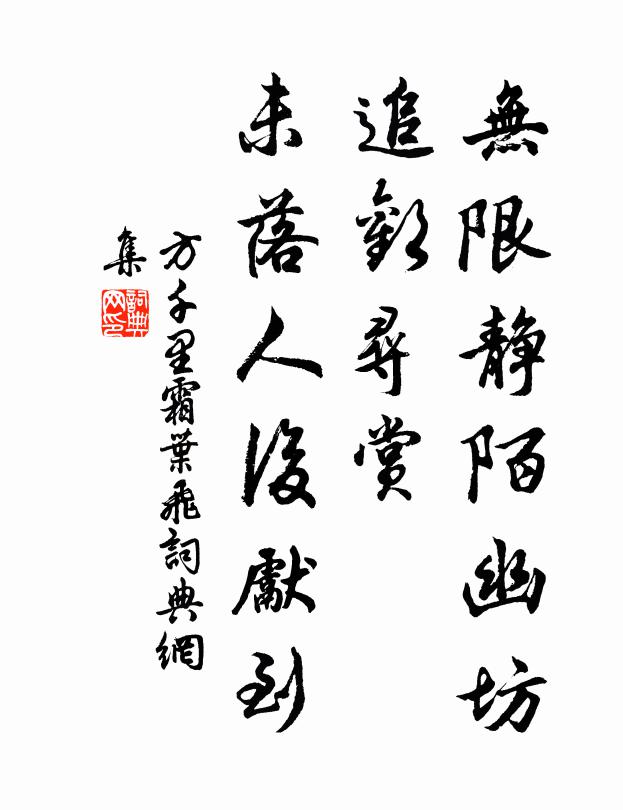 無限靜陌幽坊
追歡尋賞
未落人後獻到
方千里霜葉飛詞典網
集
詞典
网印